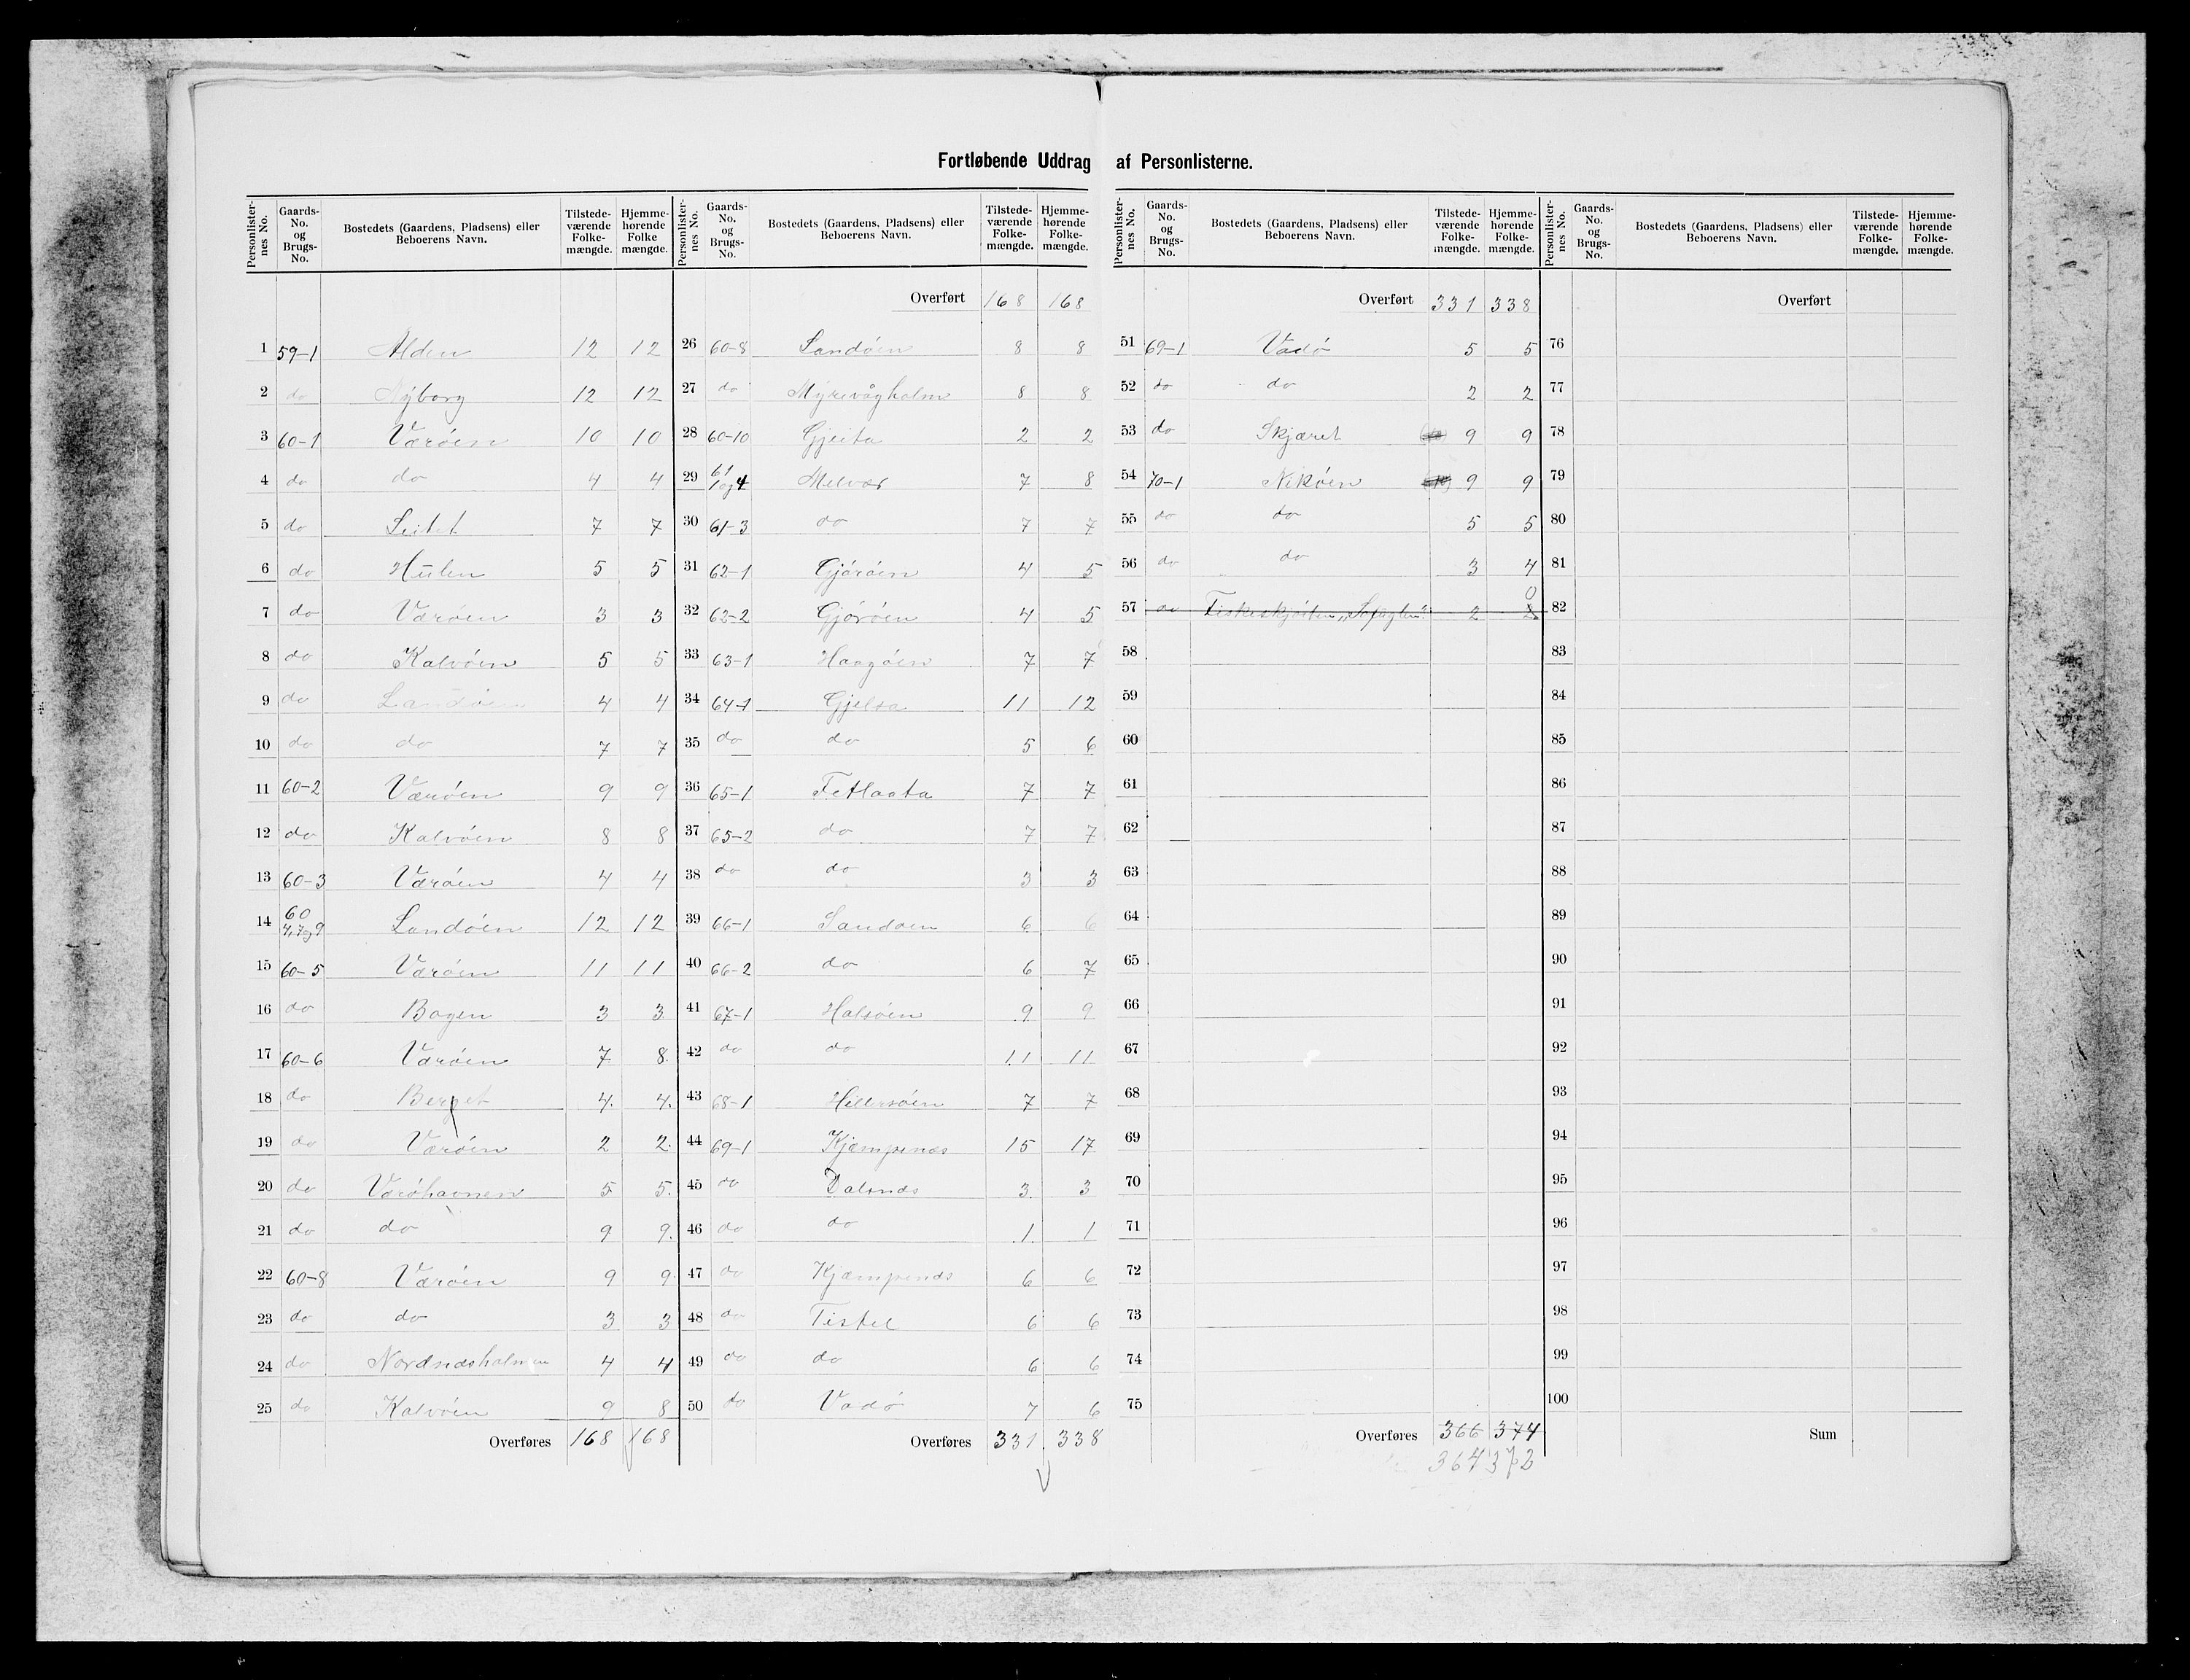 Fortløbende Uddrag af Personlisterne.
Personlister-nes No. Gaards-No. og Brugs-No. Bostedets (Gaardens, Pladsens) eller Beboerens Navn. Tilstede-værende Folke-mængde. Hjemme-hørende Folke mængde.
1 59-1 Alden 12 12
2 do Nyborg 12 12
3 60-1 Værøen 10 10
4 do do 4 4
5 do Seitet 7 7
6 do Hulen 5 5
7 do Værøen 3 3
8 do Kalvøen 5 5
9 do Landøen 4 4
10 do do 7 7
11 60-2 Værøen 9 9
12 do Kalvøen 8 8
13 60-3 Værøen 4 4
14 60 4,7og9 Landøen 12 12
15 60-5 Værøen 11 11
16 do Bogen 3 3
17 60-6 Værøen 7 8
18 do Berget 4 4
19 do Værøen 2 2
20 do Værøhavnen 5 5
21 do do 9 9
22 60-8 Værøen 9 9
23 do do 3 3
24 do Nordnæsholmen 4 4
25 do Kalvøen 9 8
Overføres 168 168
Personlister-nes No. Gaards-No. og Brugs-No. Bostedets (Gaardens, Pladsens) eller Beboerens Navn. Tilstede-værende Folke-mængde. Hjemme-hørende Folke-mængde.
Overført 168 168
26 60-8 Landøen 8 8
27 do Myrevågholm 8 8
28 60-10 Gjeita 2 2
29 61 1og4 Melvær 7 8
30 61-3 do 7 7
31 62-1 Gjørøen 4 5
32 62-2 Gjørøen 4 5
33 63-1 Haagøen 7 7
34 64-1 Gjelsa 11 12
35 do do 5 6
36 65-1 Tetlaata 7 7
37 65-2 do 7 7
38 do do 3 3
39 66-1 Sandøen 6 6
40 66-2 do 6 7
41 67-1 Halsøen 9 9
42 do do 11 11
43 68-1 Hillersøen 7 7
44 69-1 Kjempenæs 15 17
45 do Dalsnæs 3 3
46 do do 1 1
47 do Kjæmpenæs 6 6
48 do Tistel 6 6
49 do do 6 6
50 do Vadø 7 6
Overføres 331 338
Personlister-nes No. Gaards-No. og Brugs-No. Bostedets (Gaardens, Pladsens) eller Beboerens Navn. Tilstede-værende Folke-mængde. Hjemme-hørende Folke-mængde.
Overført 331 338
51 69-1 Vadø 5 5
52 do do 2 2
53 do Skjæret 9 9
54 70-1 Nikøen 9 9
55 do do 5 5
56 do do 3 4
57 do Fiskeskjøiten "Søfuglen". 2 2 0
58
59
60
61
62
63
64
65
66
67
68
69
70
71
72
73
74
75
Overføres 366 374
364 372
Personlister-nes No. Gaards-No. og Brugs-No. Bostedets (Gaardens, Pladsens) eller Beboerens Navn. Tilstede-værende Folke-mængde. Hjemme-hørende Folke-mængde.
Overført
76
77
78
79
80
81
82
83
84
85
86
87
88
89
90
91
92
93
94
95
96
97
98
99
100
Sum